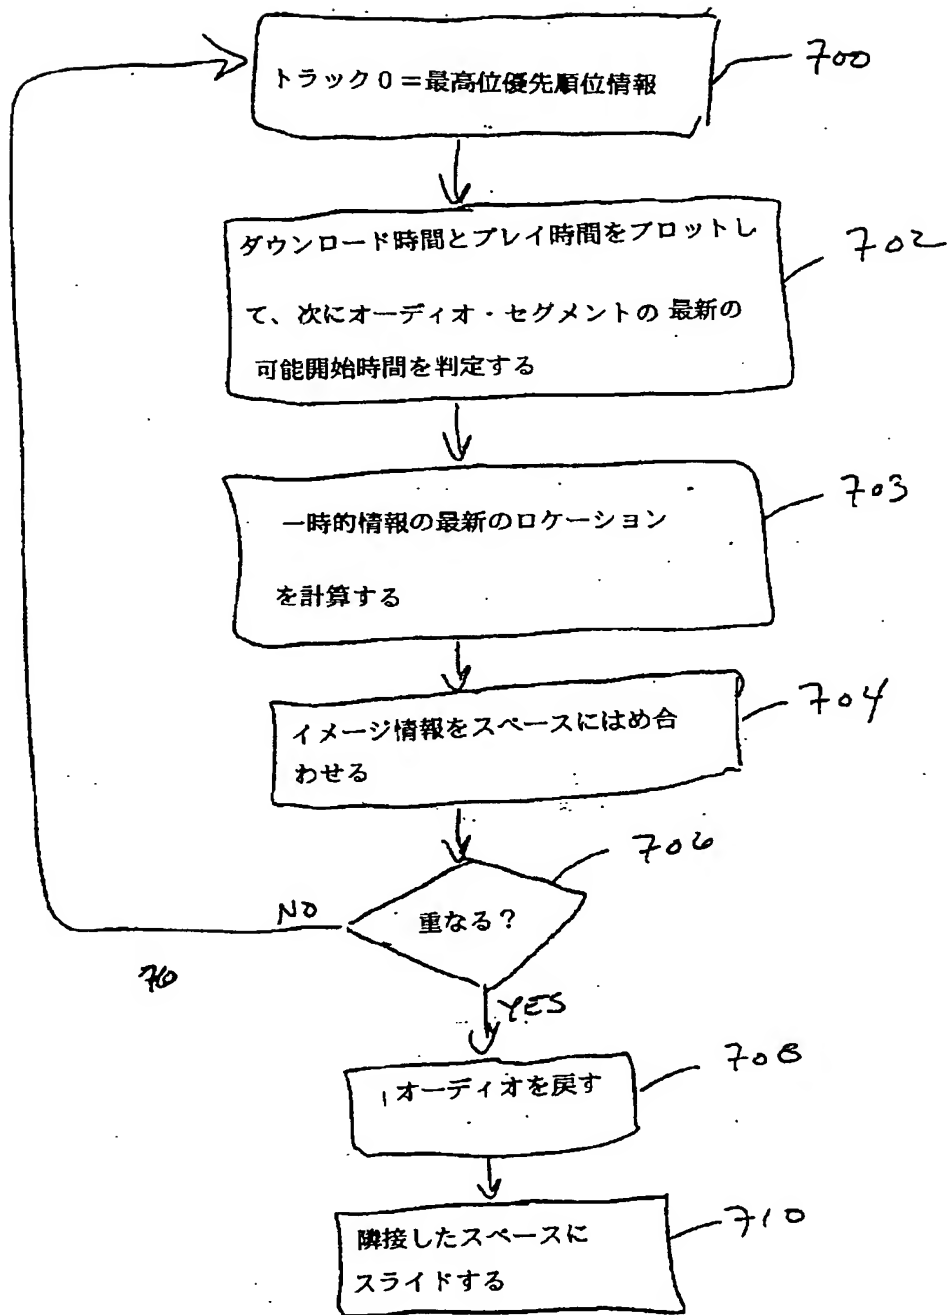 トラック0=最高位優先順位情報
700
ダウンロード時間とプレイ時間をプロットし
て、次にオーディオ・セグメントの 最新の
可能開始時間を判定する
702
一時的情報の最新のロケーション
を計算する
703
イメージ情報をスペースにはめ合
わせる
704
重なる?
706
NO
YES
オーディオを戻す
708
隣接したスペースに
スライドする
710